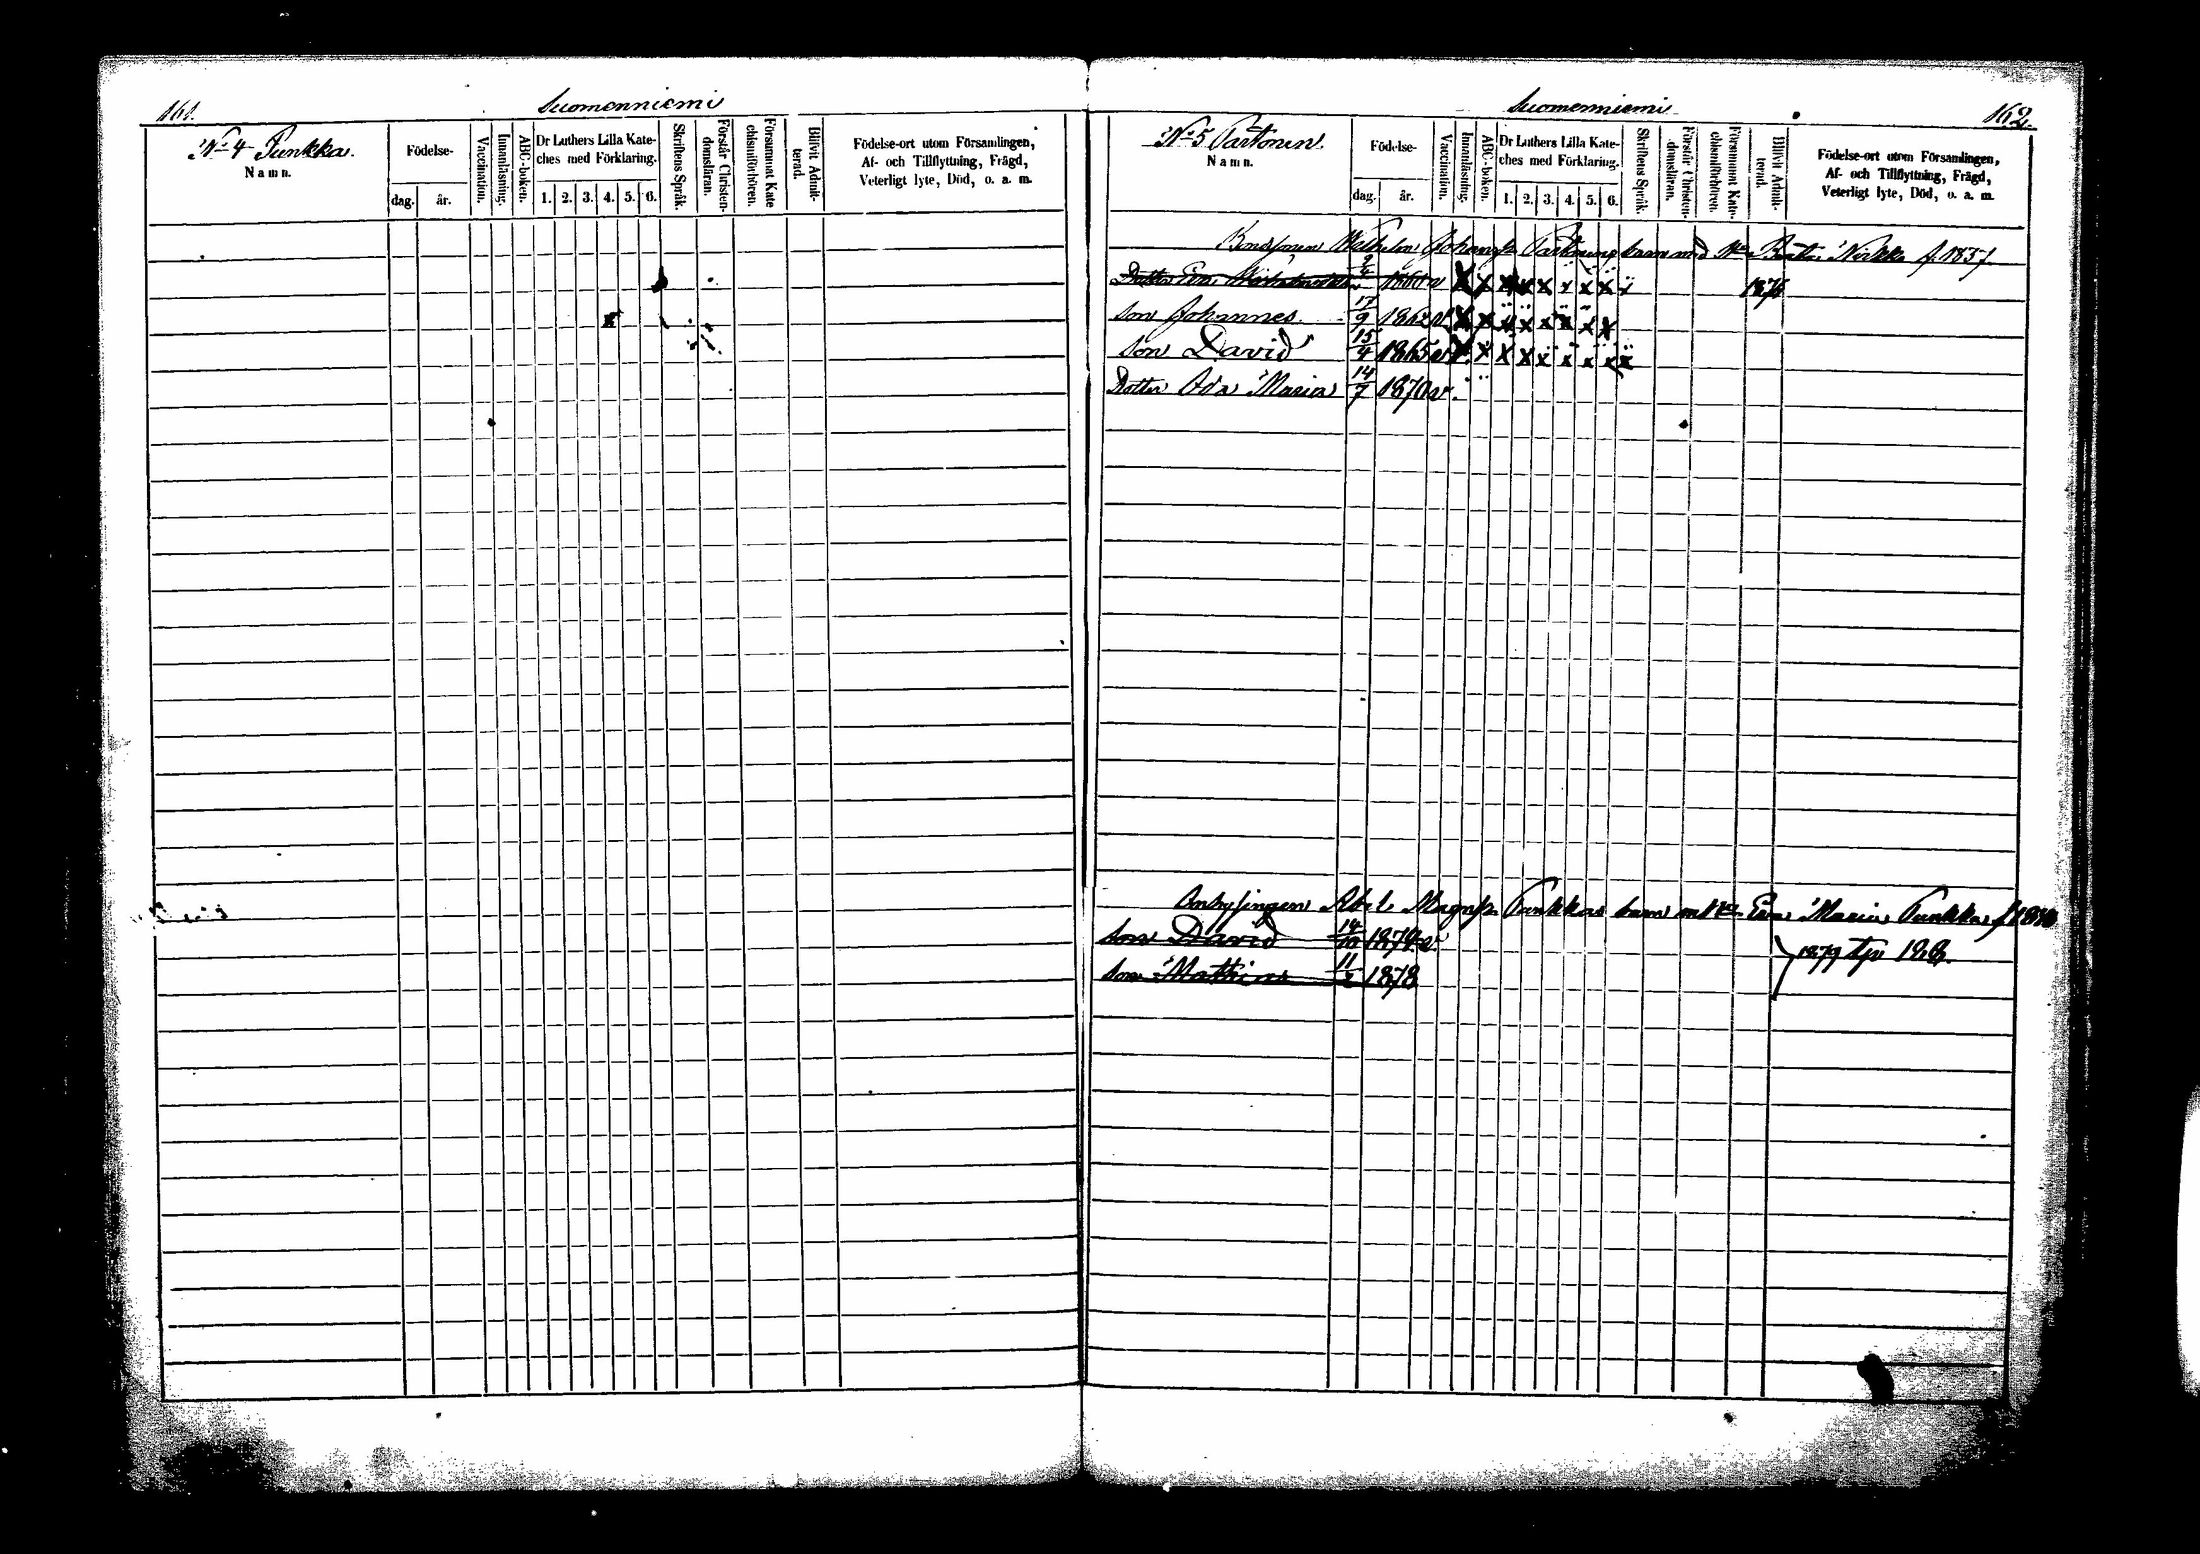 161.
Suomenniemi
No 4 Punkka.
Namn.
Födelse-
dag. år.
Vaccination.
Innanläsning.
ABC-boken.
Dr Luthers Lilla Kate-
ches med Förklaring.
1. 2. 3. 4. 5. 6.
Skriftens Språk.
Förstår Christen-
domsläran.
Försummat Kate
chismiförhören.
Blifvit Admit-
terad.
Födelse-ort utom Församlingen,
Af- och Tillflyttning, Frägd,
Veterligt lyte, Död, o. a. m.
Suomenniemi
162.
No 5 Partonen
Namn.
Födelse-
dag. år.
Vaccination.
Innanläsning.
ABC-boken.
Dr Luthers Lilla Kate-
ches med Förklaring.
1. 2. 3. 4. 5. 6.
Skriftens Språk.
Förstår Christen-
domsläran.
Försummat Kate-
chismiförhören.
Blifvit Admit-
terad.
Födelse-ort utom Församlingen,
Af- och Tillflyttning, Frägd,
Veterligt lyte, Död, o. a. m.
Johans Partonens barn med f. 1837
Dotter Eva 9/4 1860 v x x x x x x x x
son Johannes 17/9 1862 v x x x x x x x x
son David 15/4 1865 v x x x x x x x x
Dotter Ada Maria 14/7 1870 v.
Abel Magns Punkkas barn m Eva Maria Punkka
son David 14/10 1874 v
son Mathias 11/2 1878
1879